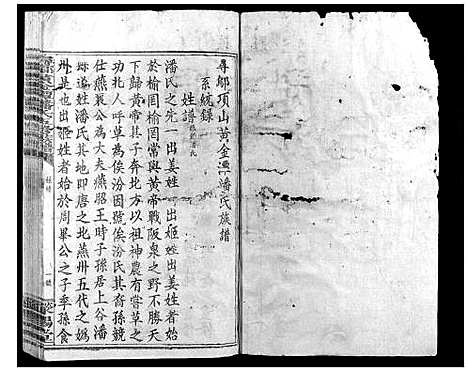 尋鄔項山黃金潭潘氏族譜
系統錄
姓譜
潘氏之先一出姜姓一出姬姓出姜姓者始
於榆罔榆罔當與黃帝戰阪泉之野不勝天
下歸黃帝其子奔北方以祖神農有嘗草之
功北人呼草為俟汾因號俟汾氏其裔孫競
仕燕襄公為大夫燕昭王時子孫居上谷潘
縣遂姓潘氏其地即唐之北燕州五代之媯
州是也出姬姓者始於周畢公之子季孫食